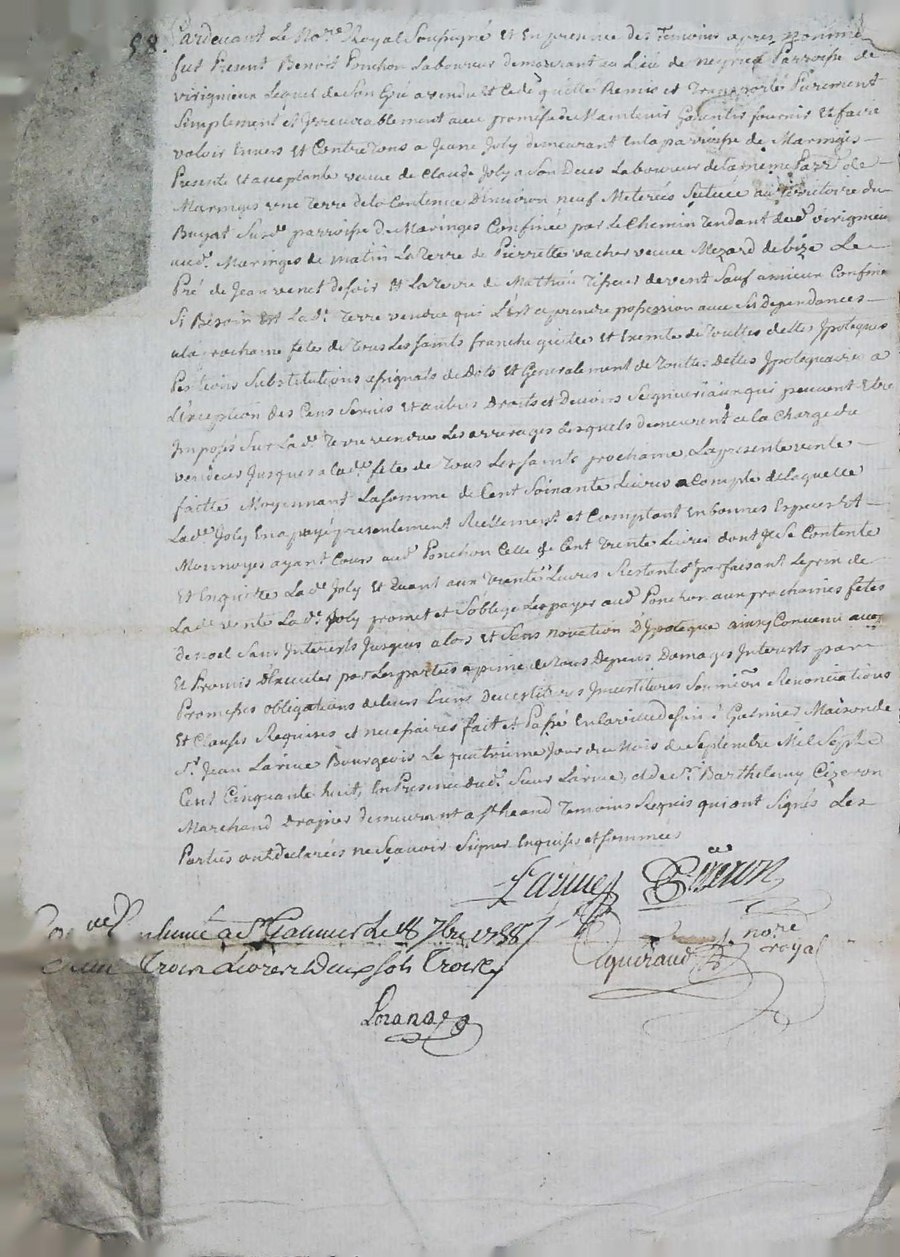 58. Pardevant Le No.re Royal Soussigné et En presence des Temoins apres nommés
fut Present Benoit Ponchon Laboureur demeurant au Lieu de neyrieu Parroisse de
virignieux Lequel de Son Gré a vendu et Cedé quitté Remis et Transporté Purement
Simplement et Irrevocablement avec promesse de Maintenir Garentir fournir et faire
valoir Envers et Contre Tous a Jeune Joly demeurant En la parroisse de Maringes
Presente et acceptante veuve de Claude Joly a Son Deces Laboureur de la meme Parr.e de
Maringes une Terre de la Contenence D'Environ neuf Meterés Scituée au Territoire du
Buyat Sur d.e parroisse de Maringes Confinée par le Chemin Tendant de virignieu
aud. Maringes de matin La Terre de Pierrette vacher veuve Mezard de bize Le
Pré de Jean venet de soir et La Terre de Mathieu de vent Sauf amieux Confiner
Si Besoin Est La d.e Terre vendue qui L'Est a prendre possession avec Ses Dependances
a la prochaine fete de Tous Les saints franche quitte et Exemte de Touttes dettes Ipoteques
Pentions Substitutions assignats de Dots et Generalement de Touttes Dettes Ipotequaires a
L'Exception des Cens Servis et autres Droits et Devoirs Seigneuriaux qui peuvent Etre
Imposés Sur La d.e Terre vendue Les arrerages desquels demeurent a la Charge du
vendeur Jusques a lad.e fete de Tous Les saints prochaine La presente vente
faitte Moyennant La somme de Cent Soixante Livres a Compte de Laquelle
La d.e Joly En a payé presentement Reellement et Comptant En bonnes Especes Et
Monnoyes ayant Cours aud. Ponchon Celle de Cent Trente Livres dont Il Se Contente
et En quitte La d.e Joly Et Quant aux Trente Livres Restantes parfaisant Le prix de
La d.e vente La d.e Joly promet et S'oblige Les payer aud. Ponchon aux prochaines fetes
de noel Sans Interets Jusques alors et Sans novation D'Ipoteque ainsy Convenu
Et Promis D'Executer par Les parties a peine de Tous Depens Domages Interets par
Promesses obligations de leurs biens Devestitures Investitures Soumi.on Renonciations
Et Clauses Requises et necessaires fait et Passé En la ville de Galmier Maison de
S.r Jean Larive Bourgeois Le quatrieme Jour du Mois de Septembre Mil Sept
Cent Cinquante huit En Presence dud. Sieur Larive et de S.r Barthelemy Cizeron
Marchand Drapier demeurant a S.t heand Temoins Requis qui ont Signés Les
Parties ont declarées ne Sçavoir Signer Enquises et Sommées
Larive Cizeron
a S.t Galmier Le 18 7bre 1758
no.re
royal
Loranas